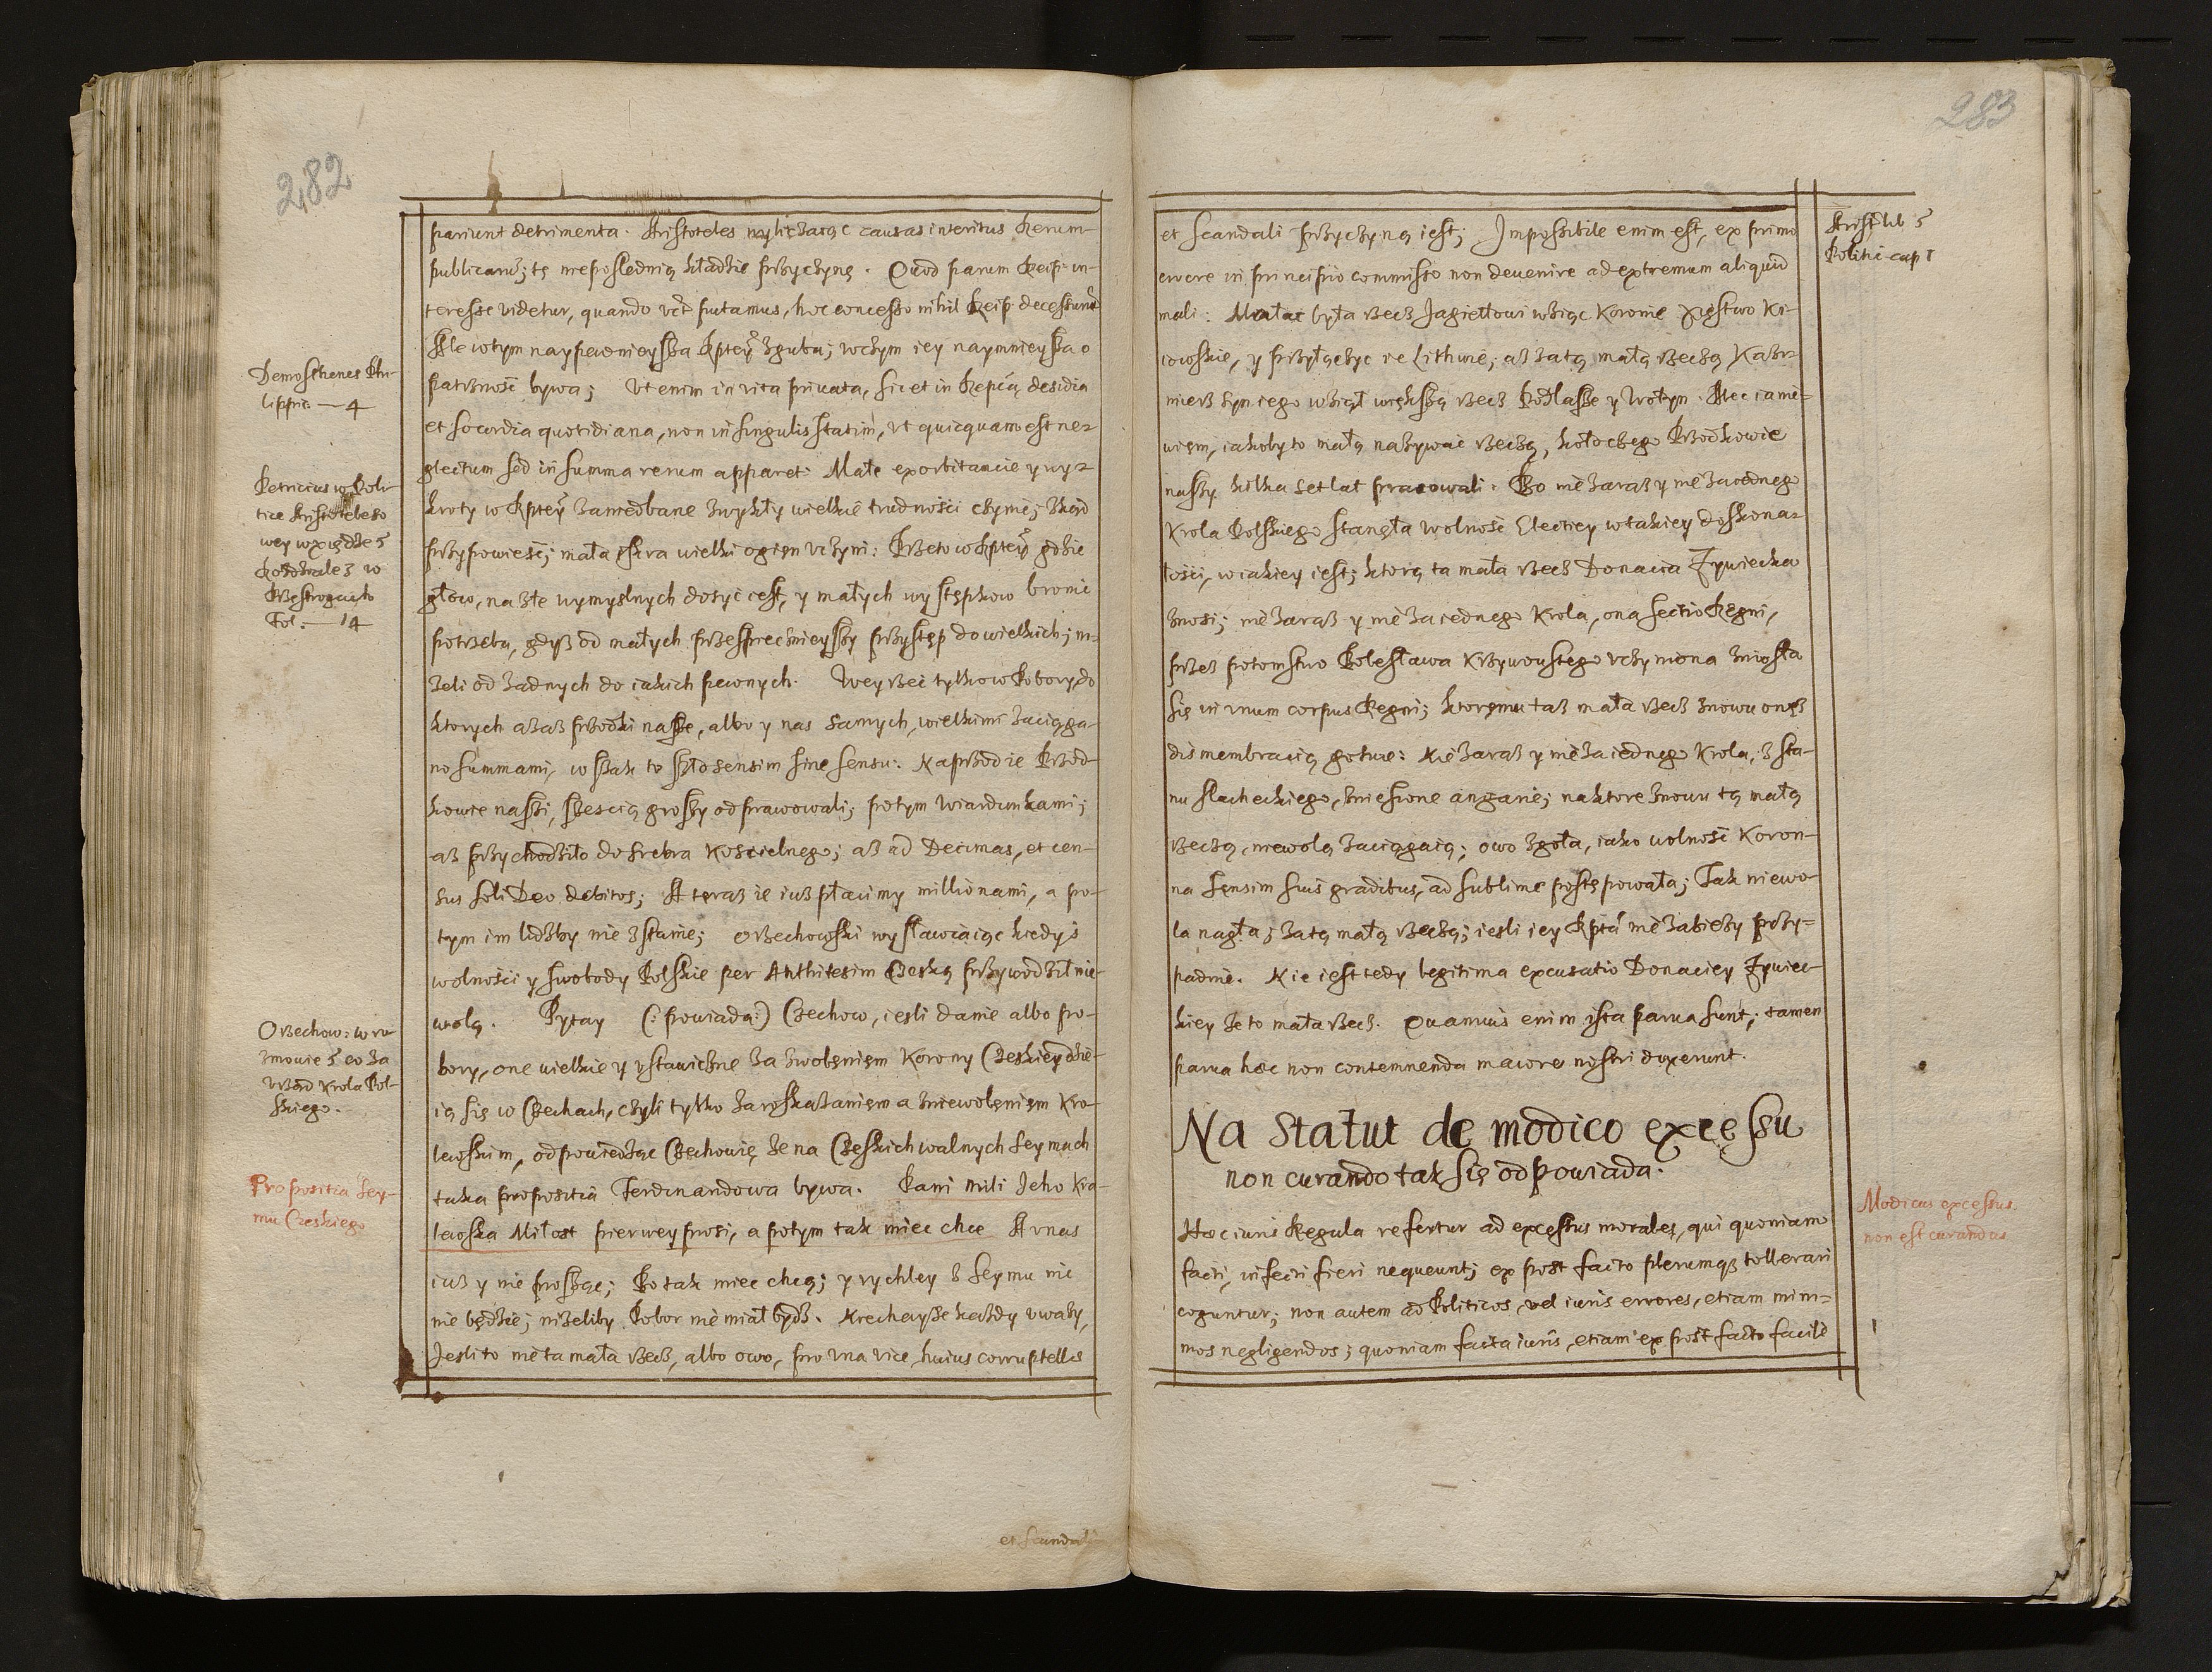 282
pariunt detrimenta. Aristoteles wyliczaiąc causas interitus Rerum-
publicarū; tę nieposlednią kładzie przyczynę. Quod parum Reip: in-
teresse videtur, quando vt putamus, hoc concesso nihil Reip: decessurū
Ale wtym naypewnieysza Rptey zguba; wczym iey naymnieysza o
patrznośc bywa; Vt enim in vita priuata, sic et in Repcā, desidia
et socordia quotidiana, non in singulis statim, vt quicquam est ne=
glectum sed in summa rerum apparet. Małe exorbitancie y wy=
kroty w Rptey zaniedbane zwykły wielkie trudnosci czynić; skąd
przypowieść; mała iskra wielki ogien vczyni: Przeto w Rptey gdzie
głow, na złe wymyslnych dosyć iest, y małych występkow bronic
potrzeba, gdysz od małych przespiecznieyszy przystęp do wielkich; ni-
zeli od zadnych do iakich pewnych. Weyrzeć tylko w Pobory, do
ktorych azasz przodki nasze, albo y nas samych, wielkimi zaciąga-
no summami, wszak to szło sensim sine sensu. Naprzod ie Przod-
kowie naszi, szescią groszy odprawowali; potym wiardunkami;
asz przychodziło do srebra Koscielnego; asz ad Decimas, et cen-
sus soli Deo debitos; A terasz ie iusz płacimy millionami, a po-
tym im liczby nie zstanie; Orzechowski wysławiaiąc kiedyś
wolności y swobody Polskie per Anthitesim Czeską przywodził nie-
wolą. Pytay (: powiada:) Czechow, iesli danie albo po-
bory, one wielkie y vstawiczne za zwolęnięm Korony Czeskiey dzie-
ią się w Czechach, czyli tylko za roskazanięm a zniewolęnięm Kro-
lewskim, odpowiedzą Czechowie, ze na Czeskich walnych Seymach
taka propositia Ferdinandowa bywa. Pani mili Jeho Kra-
lewska Miłost pierwey prosi, a potym tak miec chce A v nas
iusz y nie proszą; Bo tak miec chcą; y rychley z Seymu nic
nie będzie; nizeliby Pobor nie miał bydz. Niechaysze kazdy vwazy,
Jesli to nie ta mała rzecz, albo owo, pro vna vice, huius corruptellę
et scandali
Demosthenes Phi-
lippic — 4
Petricius w Poli-
tice Aristoteleso
wey w xiędze 5
Rozdziale 3 w
Przestrogach
Fol: — 14
Orzechow: w ro
zmowie 5 co za
vrząd Krola Pol-
skiego.
Propositia Sey-
mu Czeskiego
283
et scandali przyczyną iest; Impossibile enim est, ex primo
errore in principio commisso non deuenire ad extremum aliquid
mali. Małać była rzecz Jagiełłowi wziąć Koronie xięstwo Ki-
iowskie, y przyłączyc ie Lithwie; asz za tą małą rzeczą Kazi-
mierz syn iego wziął większą rzecz Podlasze y Wołyn. Alec ia nie-
wiem, iakoby to małą nazywac rzeczą, koło czego Przodkowie
naszy kilka set lat pracowali. Bo nie zarasz y nie za iednego
Krola Polskiego stanęła wolność Electiey w takiey doskona=
łości, w iakiey iest; ktorą ta mała rzecz Donacia Zywiecka
znosi; nie zarasz y nie za iednego Krola, ona sectio Regni,
przez potomstwo Bolesława Krzywoustego vczyniona zniosła
się in vnum corpus Regni; ktoręmu tasz mała rzecz znowu onęsz
dismembracią gotuie: Nie zarasz y nie za iednego Krola, z sta-
nu slacheckiego, zniesione angarie; na ktore znowu tą małą
rzeczą, niewolą zaciągaią; owo zgoła, iako wolność Koron-
na sęnsim suis gradibus, ad sublime postępowała; Tak niewo-
la nagła; za tą małą rzeczą; iesli iey Rpta nie zabiezy przy=
padnie. Nie iest tedy legitima excusatio Donaciey Zywiec-
kiey ze to mała rzecz. Quamuis enim ista parua sunt; tamen
parua hæc non contemnenda maiores nostri duxerunt.
Na Statut de modico excęssu
non curando tak się odpowiada.
Hæc iuris Regula refertur ad excęssus moralęs, qui quoniam
facti, infecti fieri nequeunt; ex post facto plerumq3 tollerari
coguntur; non autem ad Politicos, vel iuris errores, etiam mini=
mos negligendos; quoniam facta iuris, etiam ex post facto facilè
Arist lib 5
Politic cap 1
Modicus excessus
non est curandus